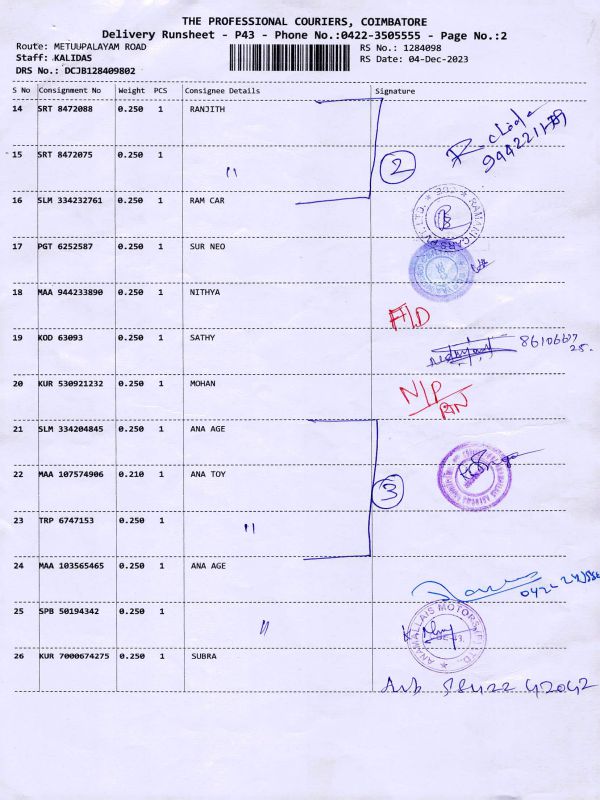 THE PROFESSIONAL COURIERS, COIMBATORE
Delivery Runsheet - P43 - Phone No.:0422-3505555 - Page No.:2
Route: METUUPALAYAM ROAD
RS No.: 1284098
Staff: KALIDAS
RS Date: 04-Dec-2023
DRS No.: DCJB128409802
S No Consignment No Weight PCS Consignee Details Signature
14 SRT 8472088 0.250 1 RANJITH
15 SRT 8472075 0.250 1 "
2
16 SLM 334232761 0.250 1 RAM CAR
17 PGT 6252587 0.250 1 SUR NEO
18 MAA 944233890 0.250 1 NITHYA
A/D
19 KOD 63093 0.250 1 SATHY
20 KUR 530921232 0.250 1 MOHAN
N/P
21 SLM 334204845 0.250 1 ANA AGE
22 MAA 107574906 0.210 1 ANA TOY
3
23 TRP 6747153 0.250 1 "
24 MAA 103565465 0.250 1 ANA AGE
25 SPB 50194342 0.250 1 "
ANAMALLAIS MOTORS
26 KUR 7000674275 0.250 1 SUBRA